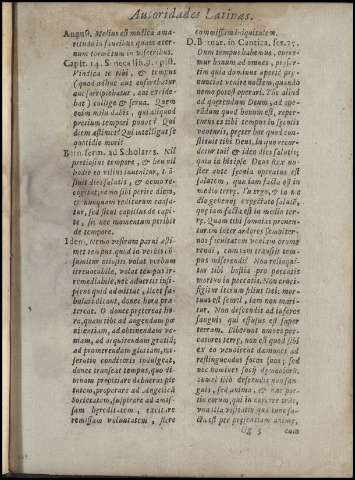 Autoridades Latinas.
August. Melius est modica ama-
ritudo in faucibus quam æter-
num tormentum in visceribus.
Capit. 14. Seneca lib. 9. epist.
Vindica te tibi, & tempus
(quod adhuc aut auferebatur
aut surripiebatur, aut excide-
bat) collige & serua. Quem
enim mihi dabis, qui aliquod
precium tempori ponat? Qui
diem æstimet? Qui intelligat se
quotidie mori
Bern. serm. ad Scholares. Nil
pretiosius tempore, & heu nil
hodie eo vilius inuenitur,
sunt dies salutis, & nemo re-
cogitat, nemo sibi perire diem,
& nunquam rediturum causa-
tur, sed sicut capillus de capi-
te, sic nec momentum peribit
de tempore.
Idem, Nemo vestrum parui æsti-
met tempus quod in verbis
sumitur otiosis volat verbum
irreuocabile, volat tempus ir-
remediabile, nec aduertit insi-
piens quid admittat, licet fa-
bulari dicunt, donec hora præ-
tereat. O donec prætereat ho-
ra, quam tibi ad augendam pœ-
nitentiam, ad obtinendam ve-
niam, ad acquirendam gratiã;
ad promerendam gloriam, mi-
seratio conditoris indulget,
donec transeat tempus, quo di-
uinam propitiare debueras pie-
tatem, properare ad Angelicã
Societatem, suspirare ad amis-
sam hæreditatem, excitare
remissam voluntatem, flere
commissam iniquitatem.
D. Bernar. in Cantica, ser. 75.
Dum tempus habemus, opere-
mur bonum ad omnes, præser-
tim quia dominus aperte pro-
nuntiat venturam noctem, quando
nemo potest operari. Tũc aliud
ad quærendum Deum, ad ope-
randum quod bonum est, reper-
turus es tibi tempus in sæculis
venturis, præter hoc quod con-
stituit tibi Deus, in quo recor-
detur tui? & ideo dies salutis,
quia in his ipse Deus Rex no-
ster ante sæcula operatus est
salutem, quæ iam facta est in
medio terræ.
dio gehennæ expectato salutẽ,
quæ iam facta est in medio ter-
ræ. Quam tibi somniis procu-
rum inter ardores sempiter-
nos facultatem veniam prome-
rendi, cum iam transiit tem-
pus miserendi? Non relinqui-
tur tibi hostia pro peccatis
mortuo in peccatis. Non cruci-
figitur iterum filius Dei: mor-
tuus est semel, iam non mori-
tur. Non descendit ad inferos
sanguis qui effusus est super
terram. Biberunt omnes pec-
catores terræ, non est quod sibi
ex eo vendicent dæmones ad
restinguendos focos suos, sed
nec homines socij dæmoniorũ,
semel illò descendit non san-
guis, sed anima, & hæc por-
tio eorum, qui in carcere erãt,
vna illa visitatio, qui tunc fa-
cta est per præsentiam animæ,
Gg 5
cum